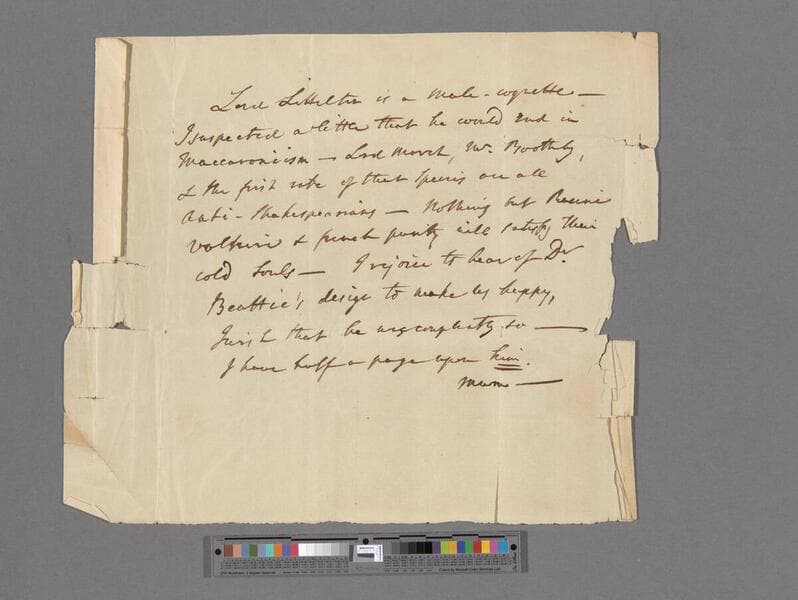 Lord Littelton is a Male-coquette —
I suspected a little that he would End in
Maccaronism — Lord March, Mr. Boothby,
& the first rate of that Species are all
Anti-Shakespearians — Nothing but Racine
Voltaire & french purity will satisfy their
cold Souls — I rejoice to hear of Dr.
Beattie's design to make us happy,
I wish that he was completely so —
I have half a page upon him.
mum —